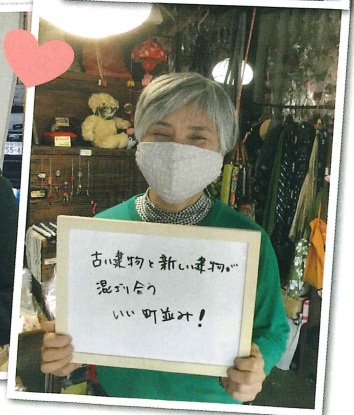 古い建物と新しい建物が
混ざり合う
いい町並み！